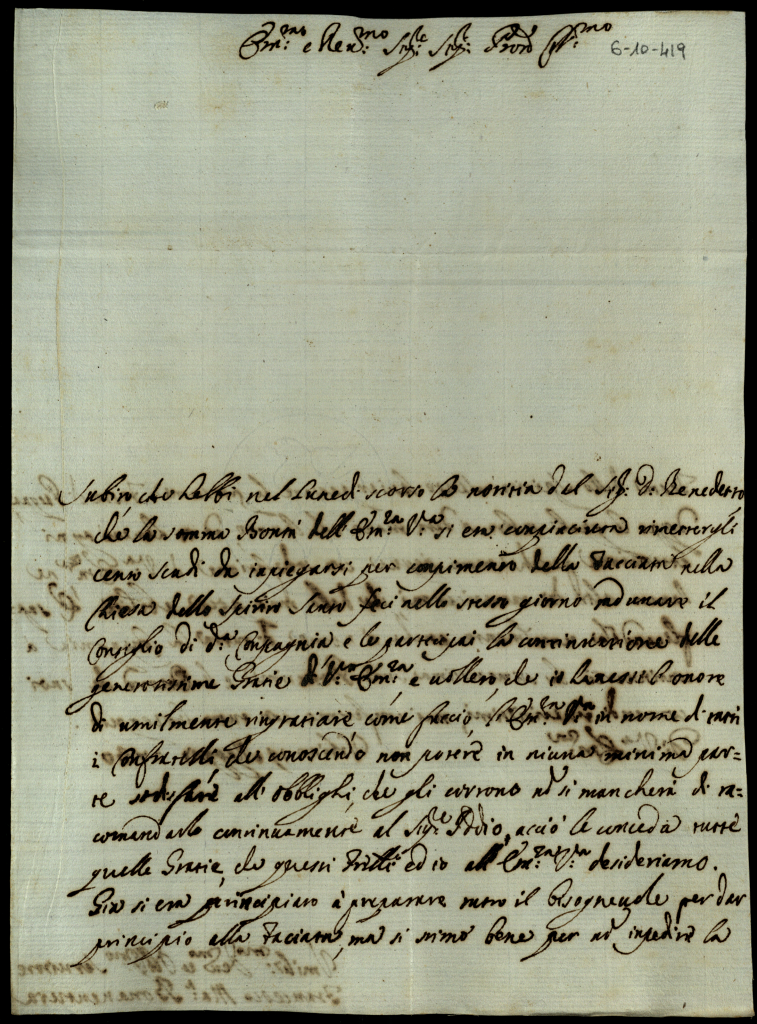 Em.mo e Rev.mo Sig.re Sig.r Pron
6-10-419
Subito che hebbi nel Lunedi scorso la notitia dal Sig.r D. Benedetto
che la somma Bontà dell'Em.za V.a si era conpiaciuta rimettergli
cento scudi da inpiegarsi per conpimento della facciata nella
Chiesa dello Spirito Santo feci nello stesso giorno radunare il
Consiglio di d.a Conpagnia e le partecipai la continuatione delle
generosissime Gratie di V. Em.za, e vollero che io havessi l'onore
di umilmente ringratiare come faccio l'Em.za V.a in nome di tutti
i Confratelli che conoscendo non potere in niuna minima par=
te sodisfare all'obblighi, che gli corrono nō si mancherà di ra=
comandarlo continuamente al Sig.re Iddio, acciò le conceda tutte
quelle Gratie, che questi fratelli ed io all'Em.za V.a desideriamo.
Già si era principiato à preparare tutto il bisognevole per dar
principio alla faciata, ma si stimò bene per nō inpedire la